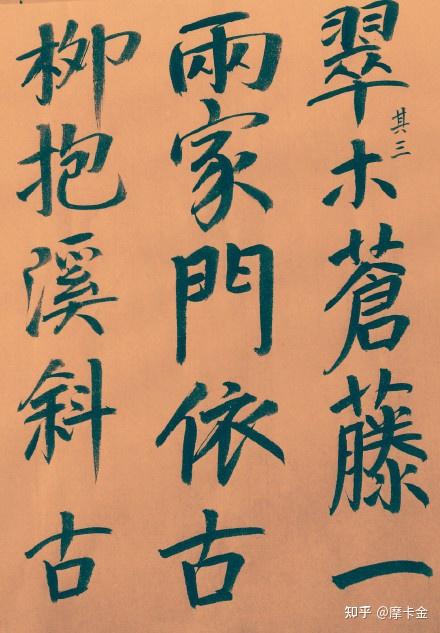 翠木蒼藤一
其三
兩家門依古
柳抱溪斜古
知乎 @摩卡金